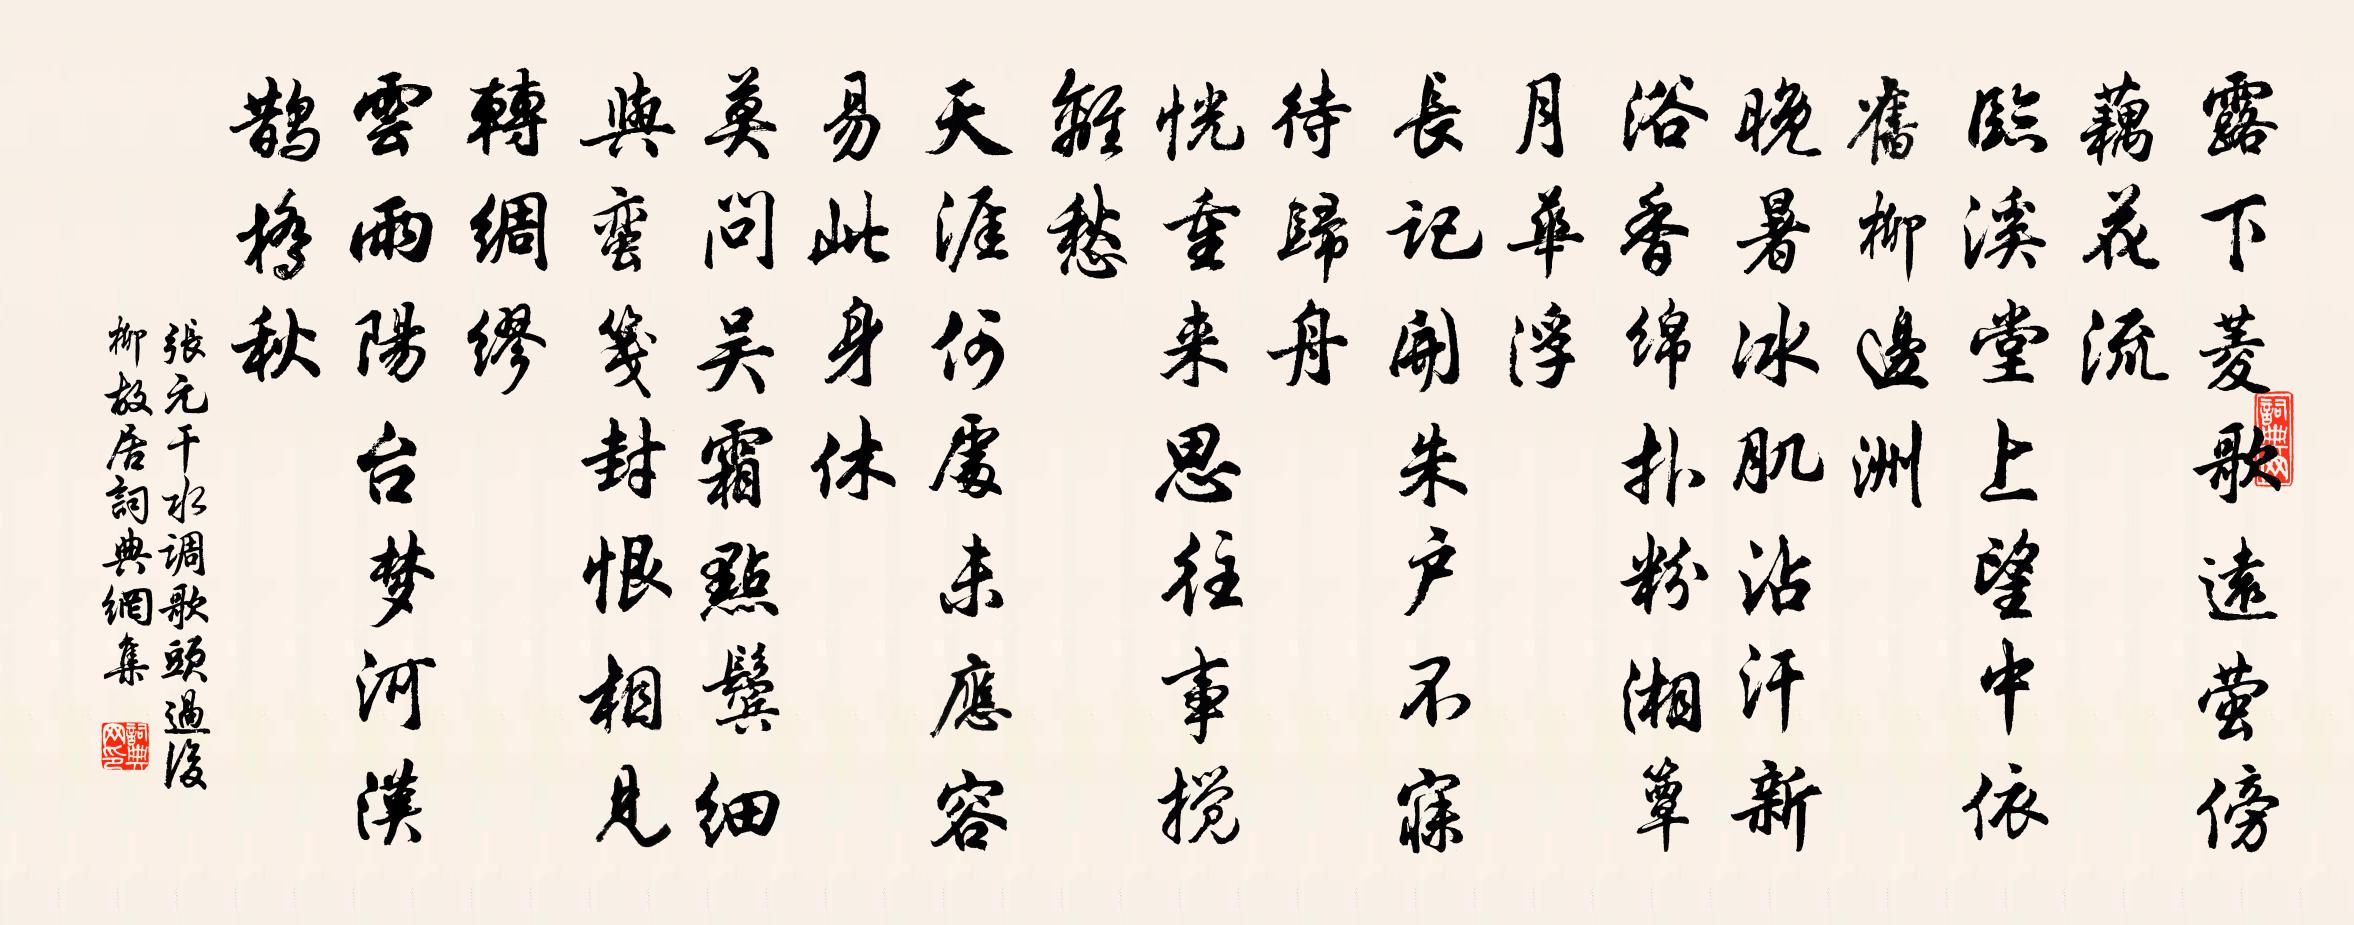 露下菱歌遠萤傍
藕花流
臨溪堂上望中依
舊柳邊洲
晚暑冰肌沾汗新
浴香绵扑粉湘簟
月華浮
長记開朱户不寐
待歸舟
恍重来思往事搅
離愁
天涯何處未應容
易此身休
莫问吴霜點鬓细
與蛮笺封恨相見
轉綢繆
雲雨陽台梦河漢
鹊橋秋
張元干水调歌頭過後
柳故居詞典網集
詞典网
詞典网印